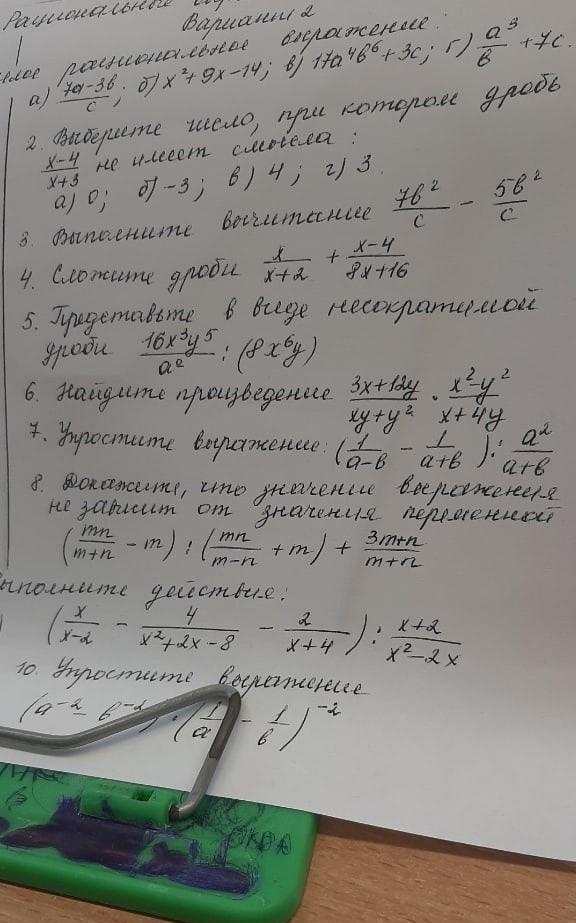 Рациональные
Вариант 2
рациональное выражение:
а) (7a-3b)/c; б) x²+9x-14; в) 17a⁴b⁶+3c; г) a³/b +7c.
2. Выберите число, при котором дробь
(x-4)/(x+3) не имеет смысла:
а) 0; б) -3; в) 4; г) 3.
3. Выполните вычитание 7b²/c - 5b²/c
4. Сложите дроби x/(x+2) + (x-4)/(8x+16)
5. Представьте в виде несократимой
дроби 16x³y⁵/a² : (8x⁶y)
6. Найдите произведение (3x+12y)/(xy+y²) · (x²-y²)/(x+4y)
7. Упростите выражение: (1/(a-b) - 1/(a+b)) : a²/(a+b)
8. Докажите, что значение выражения
не зависит от значения переменной
(mn/(m+n) - m) : (mn/(m-n) + m) + (3m+n)/(m+n)
Выполните действия:
(x/(x-2) - 4/(x²+2x-8) - 2/(x+4)) : (x+2)/(x²-2x)
10. Упростите выражение
(a⁻² - b⁻²) : (1/a - 1/b)⁻²